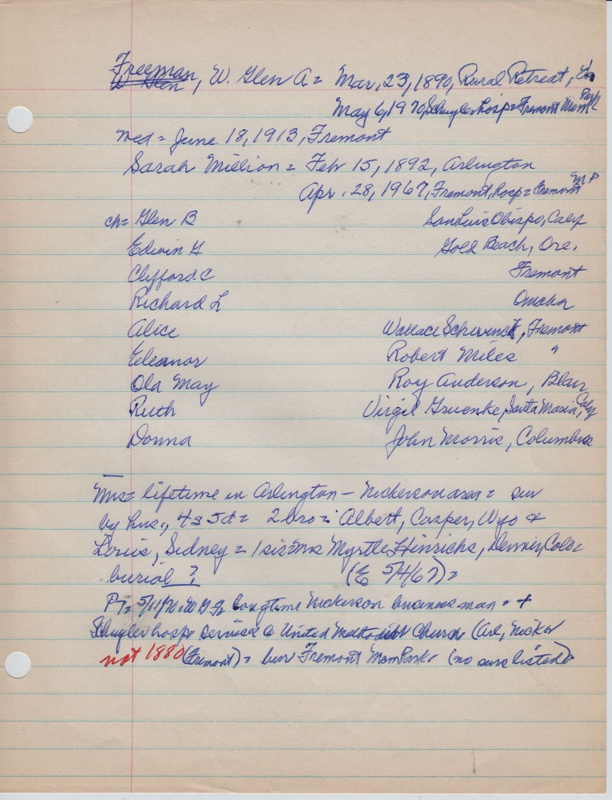 Freeman, W. Glen A = Mar, 23, 1890, Rural Retreat, Va
W Glen
May 6, 1970, Schuyler Hosp = Fremont Mem Park
med = June 18, 1913, Fremont
Sarah Million = Feb 15, 1892, Arlington
Apr. 28, 1967, Fremont, Hosp = Fremont M P
ch = Glen B San Luis Obispo, Calif
Edwin G Gold Beach, Ore.
Clifford C Fremont
Richard L Omaha
Alice Wallace Schwinck, Fremont
Eleanor Robert Miles "
Ola May Roy Anderson, Blair
Ruth Virgil Gruenke, Santa Maria, Calif
Donna John Morris, Columbus
Mrs = lifetime in Arlington - Nickerson area = sur
by hus., 4s 5d = 2 bro = Albert, Casper, Wyo +
Louis, Sidney = 1 sis = Mrs Myrtle Hinrichs, Denver, Colo
burial ? (E 5/4/67) =
PT = 5/11/70 = longtime Nickerson business man = +
Schuyler hosp = service @ United Methodist Church (Arl, Nicker
not 1880 (Fremont) = bur Fremont Mem Park = (no surv listed)